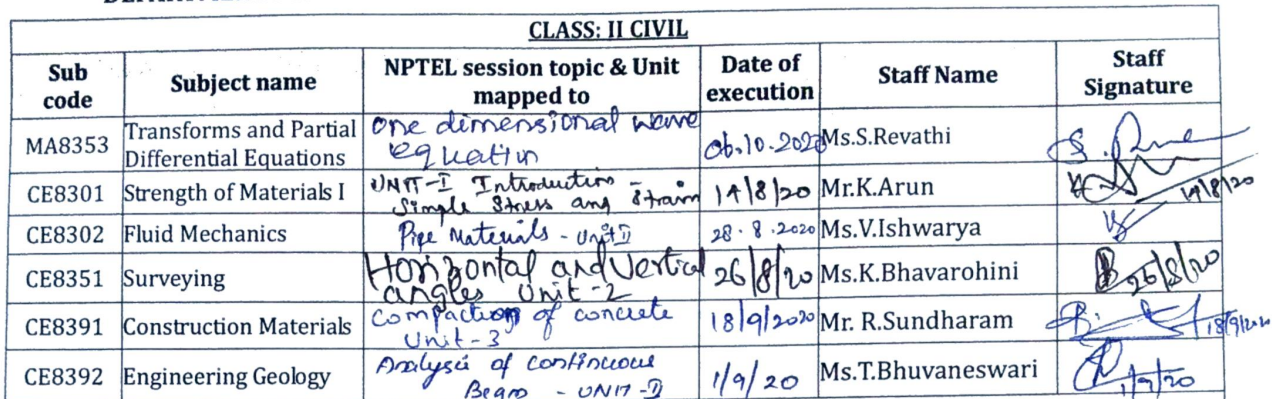 CLASS: II CIVIL
Sub code | Subject name | NPTEL session topic & Unit mapped to | Date of execution | Staff Name | Staff Signature
MA8353 | Transforms and Partial Differential Equations | One dimensional wave equation | 06.10.2020 | Ms.S.Revathi
CE8301 | Strength of Materials I | UNIT-I Introduction - Simple Stress and Strain | 14/8/20 | Mr.K.Arun | 14/8/20
CE8302 | Fluid Mechanics | Pipe Materials - Unit II | 28.8.2020 | Ms.V.Ishwarya
CE8351 | Surveying | Horizontal and Vertical angles Unit-2 | 26/8/20 | Ms.K.Bhavarohini | 26/8/20
CE8391 | Construction Materials | Compaction of concrete Unit-3 | 18/9/2020 | Mr. R.Sundharam | 18/9/2020
CE8392 | Engineering Geology | Analysis of continuous Beam - UNIT-II | 1/9/20 | Ms.T.Bhuvaneswari | 1/9/20